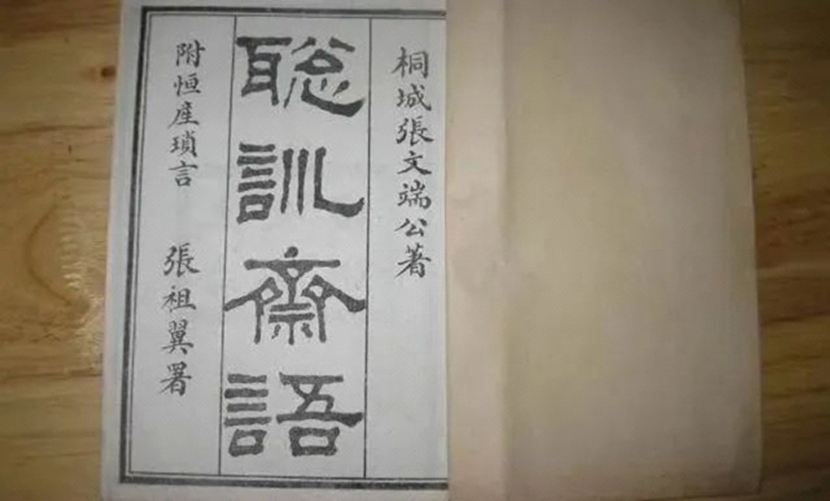 桐城張文端公著
聡訓齋語
附恒産瑣言 張祖翼署